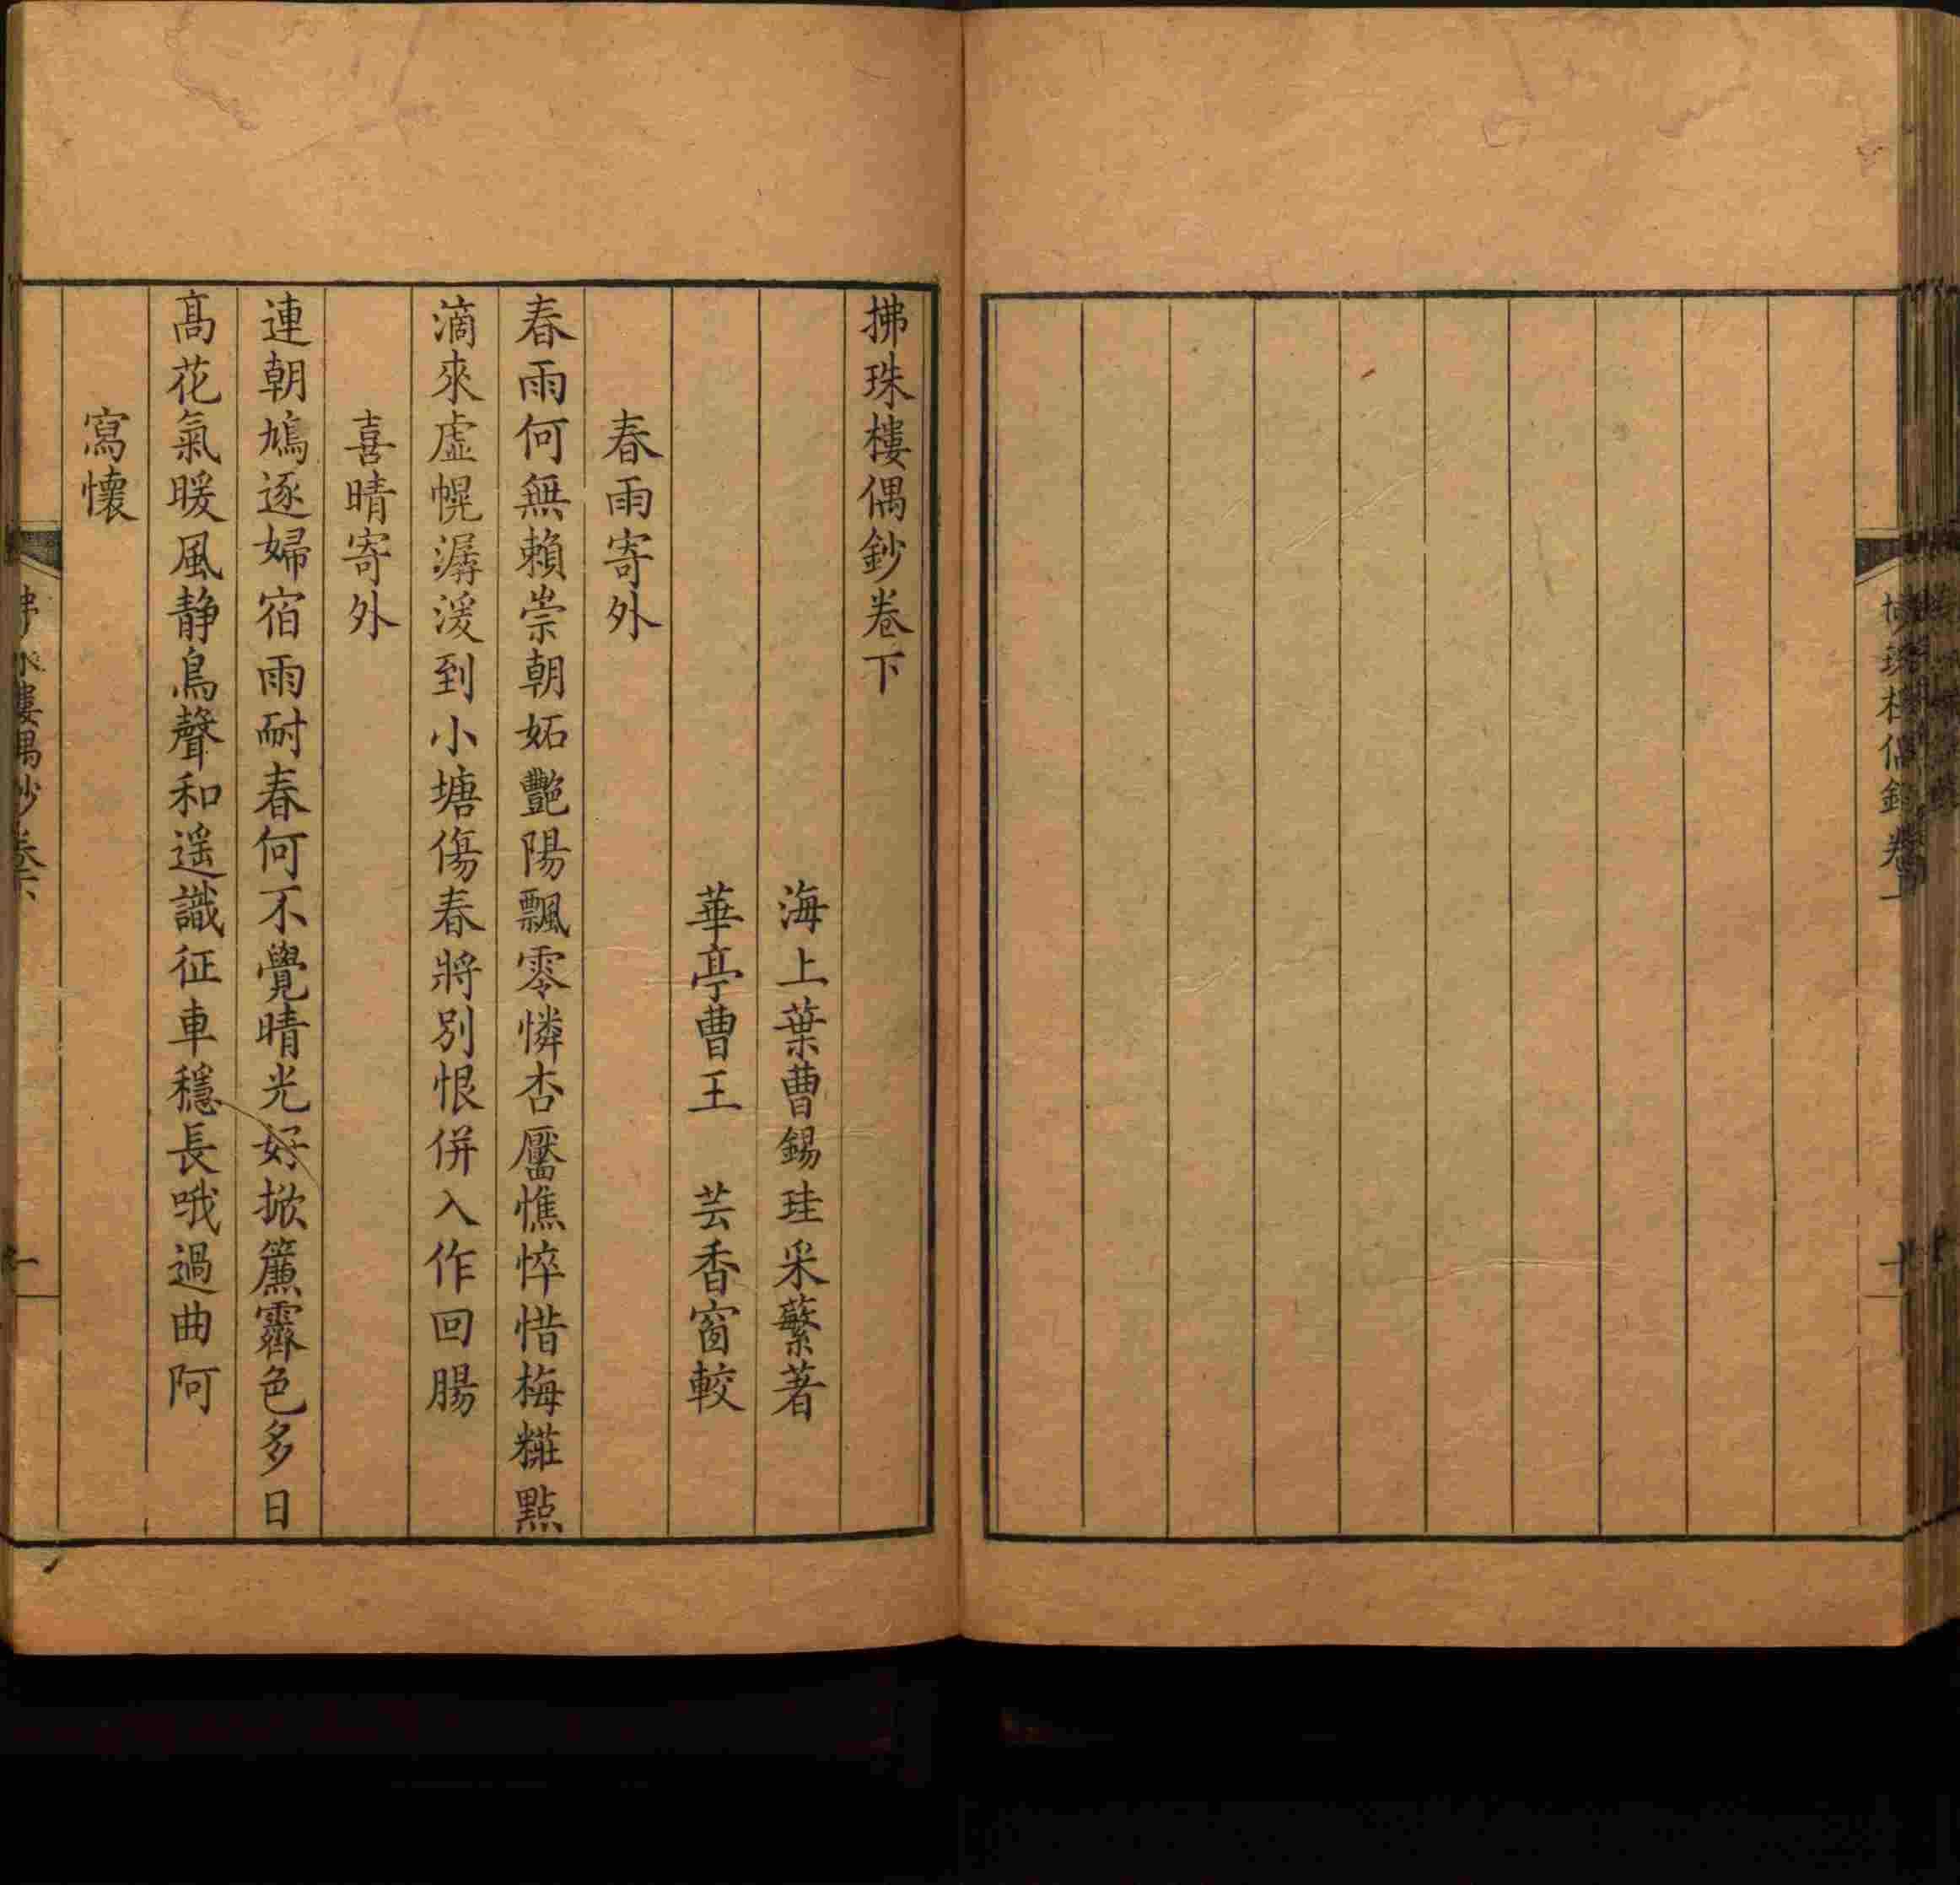 拂珠樓偶鈔卷下
海上葉曹錫珪采蘩著
華亭曹王　芸香窗較
春雨寄外
春雨何無賴崇朝妬豔陽飄零憐杏靨憔悴惜梅糚點
滴來虛幌潺湲到小塘傷春將別恨併入作回腸
喜晴寄外
連朝鳩逐婦宿雨耐春何不覺晴光好掀簾霽色多日
高花氣暖風静鳥聲和遥識征車穩長哦過曲阿
寫懷
珠樓偶鈔卷
一